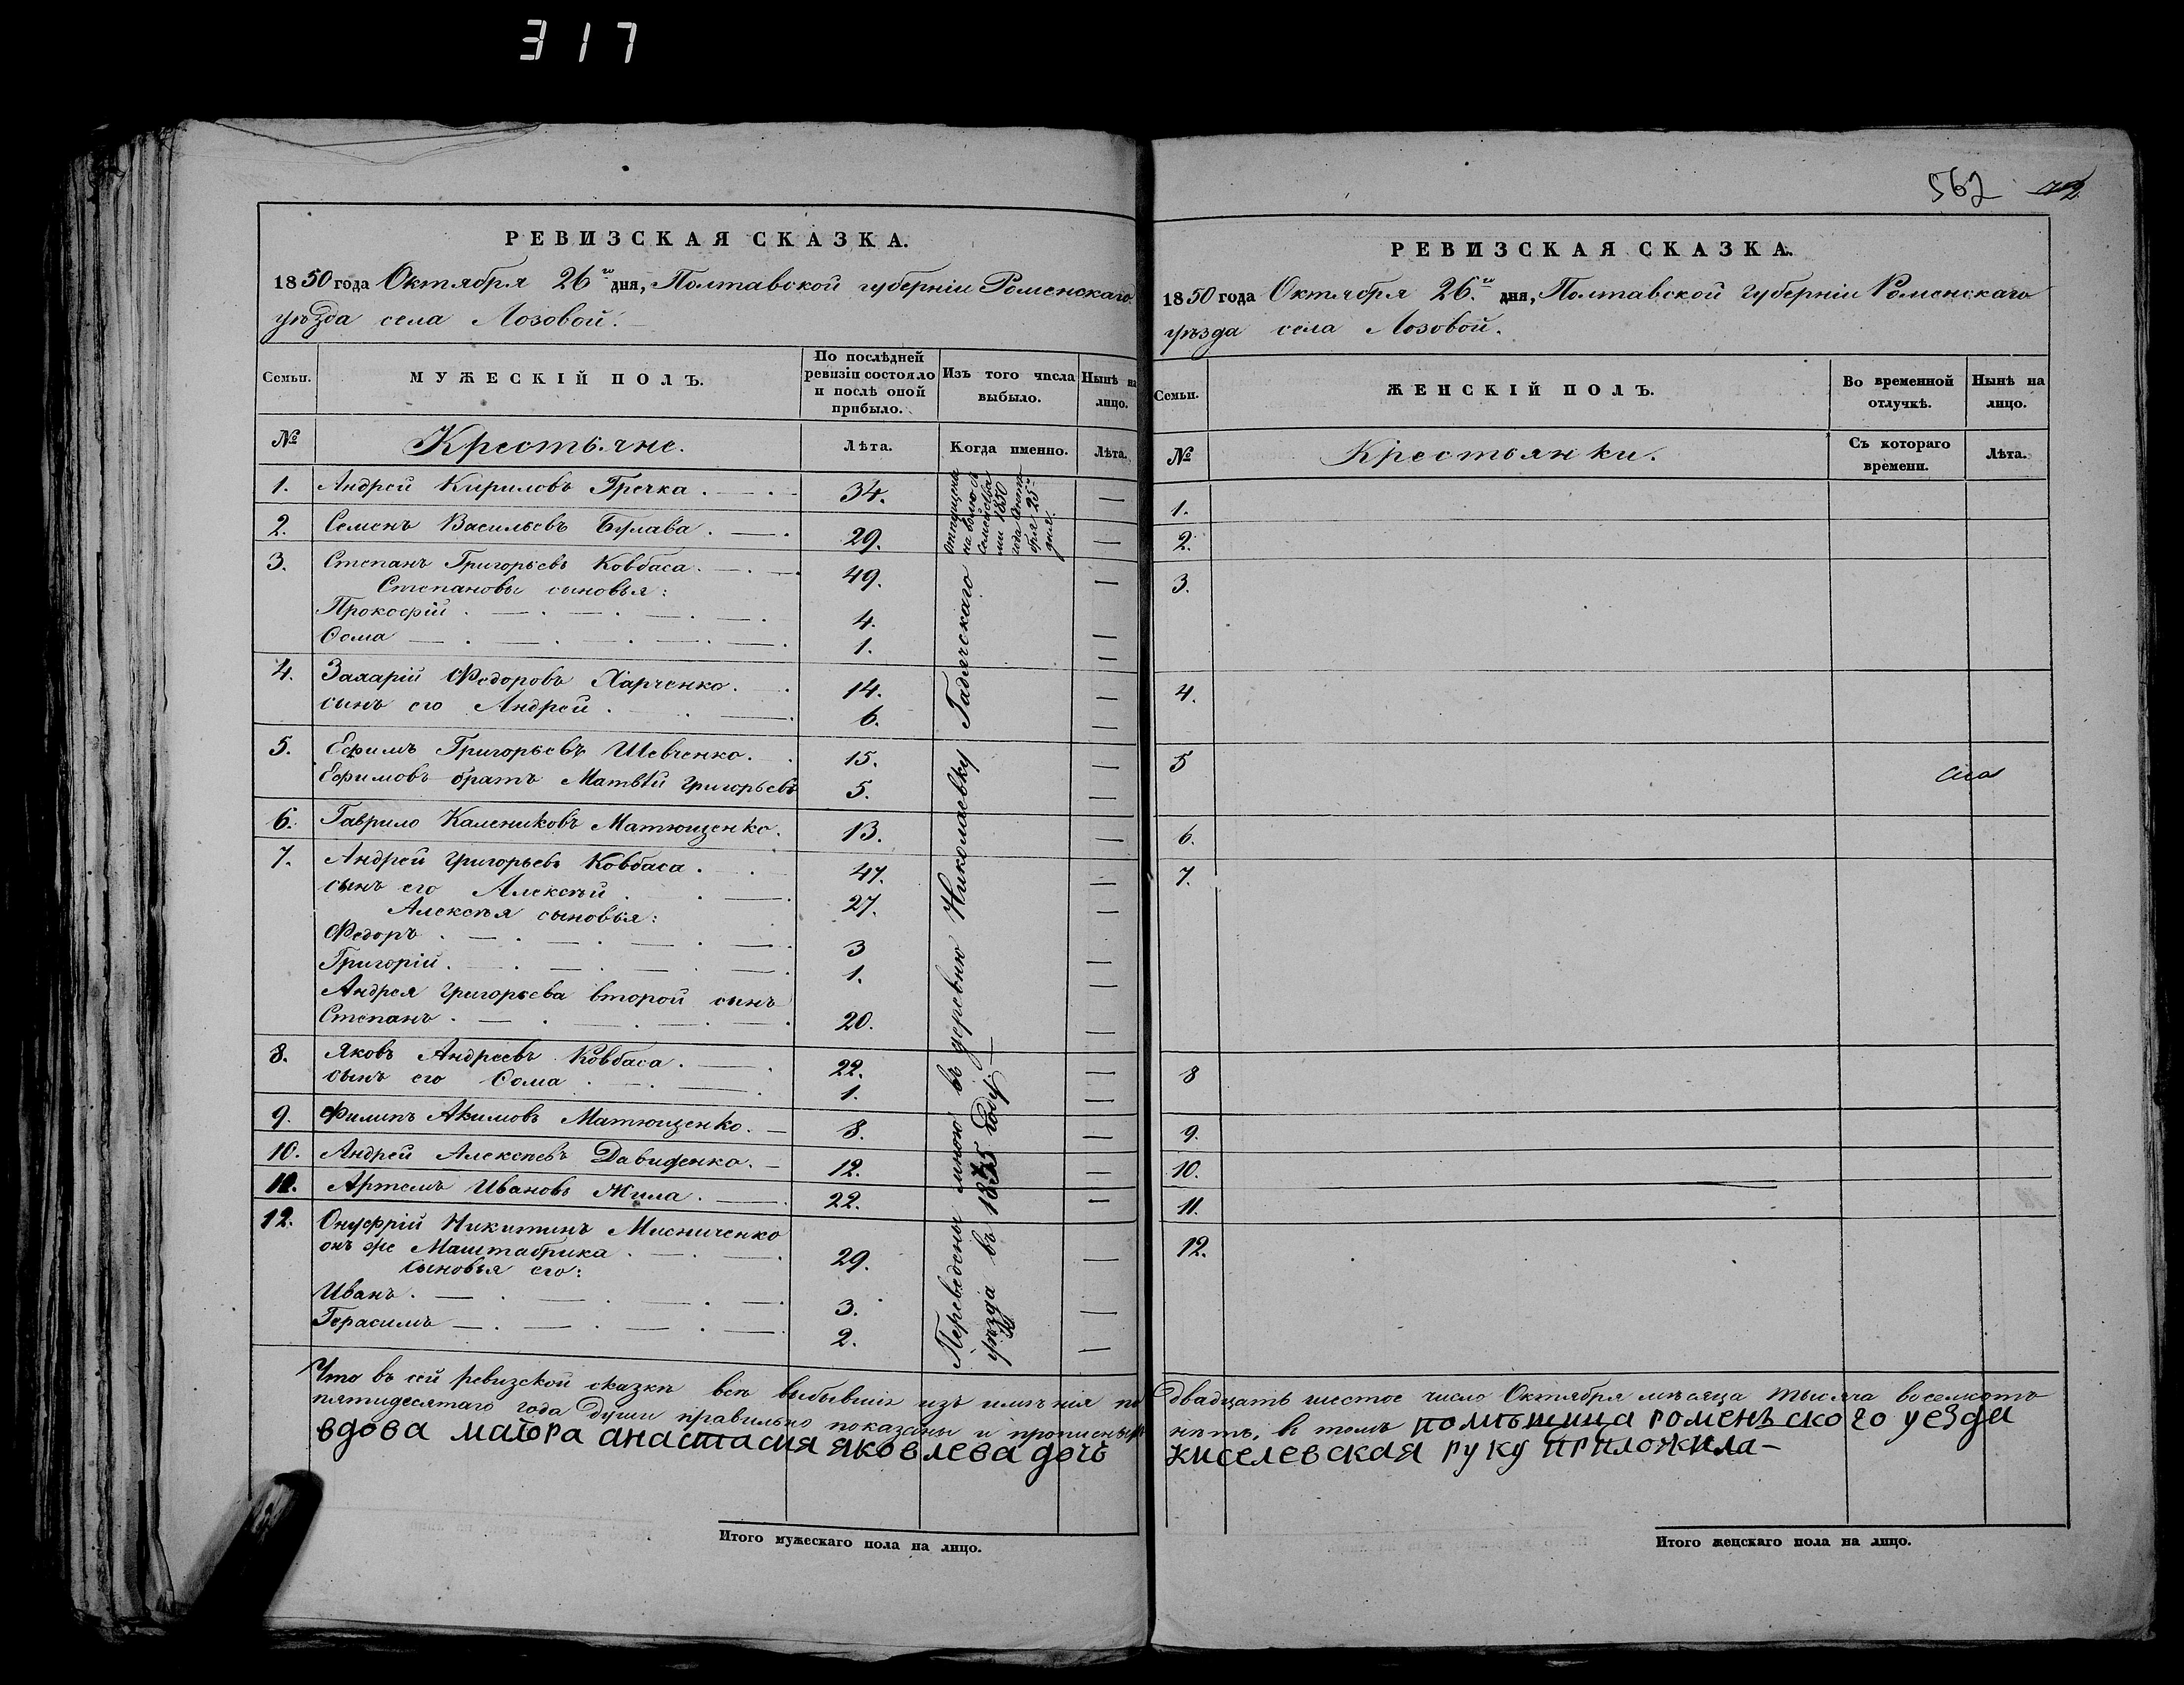 317
562
РЕВИЗСКАЯ СКАЗКА.
1850 года Октября 26го дня, Полтавской губерніи Роменскаго
уѣзда села Лозовой.
Семьи.
МУЖЕСКІЙ ПОЛЪ.
По послѣдней ревизіи состояло и послѣ оной прибыло.
Изъ того числа выбыло.
Нынѣ на лицо.
№
Крестьяне.
Лѣта.
Когда именно.
Лѣта.
1. Андрей Кириловъ Гречка. 34. —
2. Семенъ Васильевъ Булава. 29. —
Отпущены на волю съ семействами 1850 года Октября 25го дня.
3. Степанъ Григорьевъ Ковбаса. 49. —
Степановы сыновья:
Прокофій. 4. —
Ѳома 1. —
4. Захарій Федоровъ Харченко. 14. —
сынъ его Андрей. 6. —
5. Ефимъ Григорьевъ Шевченко. 15. —
Ефимовъ братъ Матвѣй Григорьевъ 5. —
6. Гаврило Калениковъ Матющенко. 13. —
7. Андрей Григорьевъ Ковбаса. 47. —
сынъ его Алексѣй. 27. —
Алексѣя сыновья:
Федоръ. 3 —
Григорій. 1. —
Андрея Григорьева второй сынъ
Степанъ. 20. —
8. Яковъ Андреевъ Ковбаса. 22. —
сынъ его Ѳома. 1. —
9. Филипъ Акимовъ Матющенко. 8. —
10. Андрей Алексѣевъ Давиденко. 12. —
11. Артемъ Ивановъ Жила. 22. —
12. Онуфрій Никитинъ Мисниченко
онъ же Маштабрика. 29. —
сыновья его:
Иванъ. 3. —
Герасимъ 2. —
Переведены мною въ деревню Николаевку Гадячскаго
уѣзда въ году. —
Что въ сей ревизской сказкѣ всѣ выбывшіе изъ имѣнія по
пятидесятаго года души правильно показаны и прописныхъ
вдова маіора анастасия яковлева дочь
Итого мужескаго пола на лицо.
РЕВИЗСКАЯ СКАЗКА.
1850 года Октября 26го дня, Полтавской Губерніи Роменскаго
уѣзда села Лозовой.
Семьи.
ЖЕНСКІЙ ПОЛЪ.
Во временной отлучкѣ.
Нынѣ на лицо.
№
Крестьянки.
Съ котораго времени.
Лѣта.
1.
2.
3.
4.
5
6.
7.
8
9.
10.
11.
12.
двадцать шестое число Октября мѣсяца тысяча восемьсотъ
нѣтъ, въ томъ помѣщица роменьского уезда
киселевская руку приложила—
Итого женскаго пола на лицо.